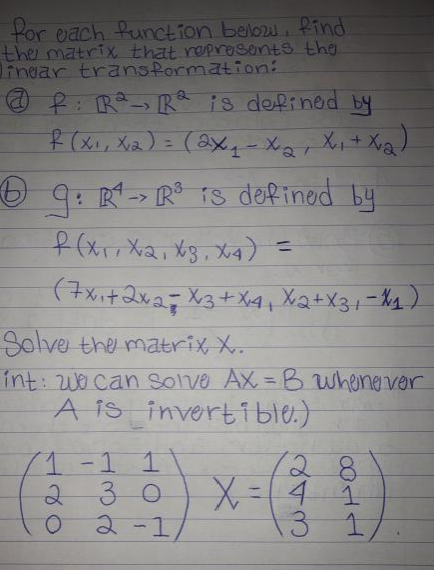 for each function below, find
the matrix that represents the
linear transformation:
ⓐ f: ℝ² → ℝ² is defined by
f(x₁, x₂) = (2x₁ - x₂, x₁ + x₂)
ⓑ g: ℝ⁴ -> ℝ³ is defined by
f(x₁, x₂, x₃, x₄) =
(7x₁+2x₂-x₃+x₄, x₂+x₃, -x₁)
Solve the matrix X.
int: we can solve AX = B whenever
A is invertible.)
(1 -1 1) (2 8)
(2 3 0) X = (4 1)
(0 2 -1) (3 1).